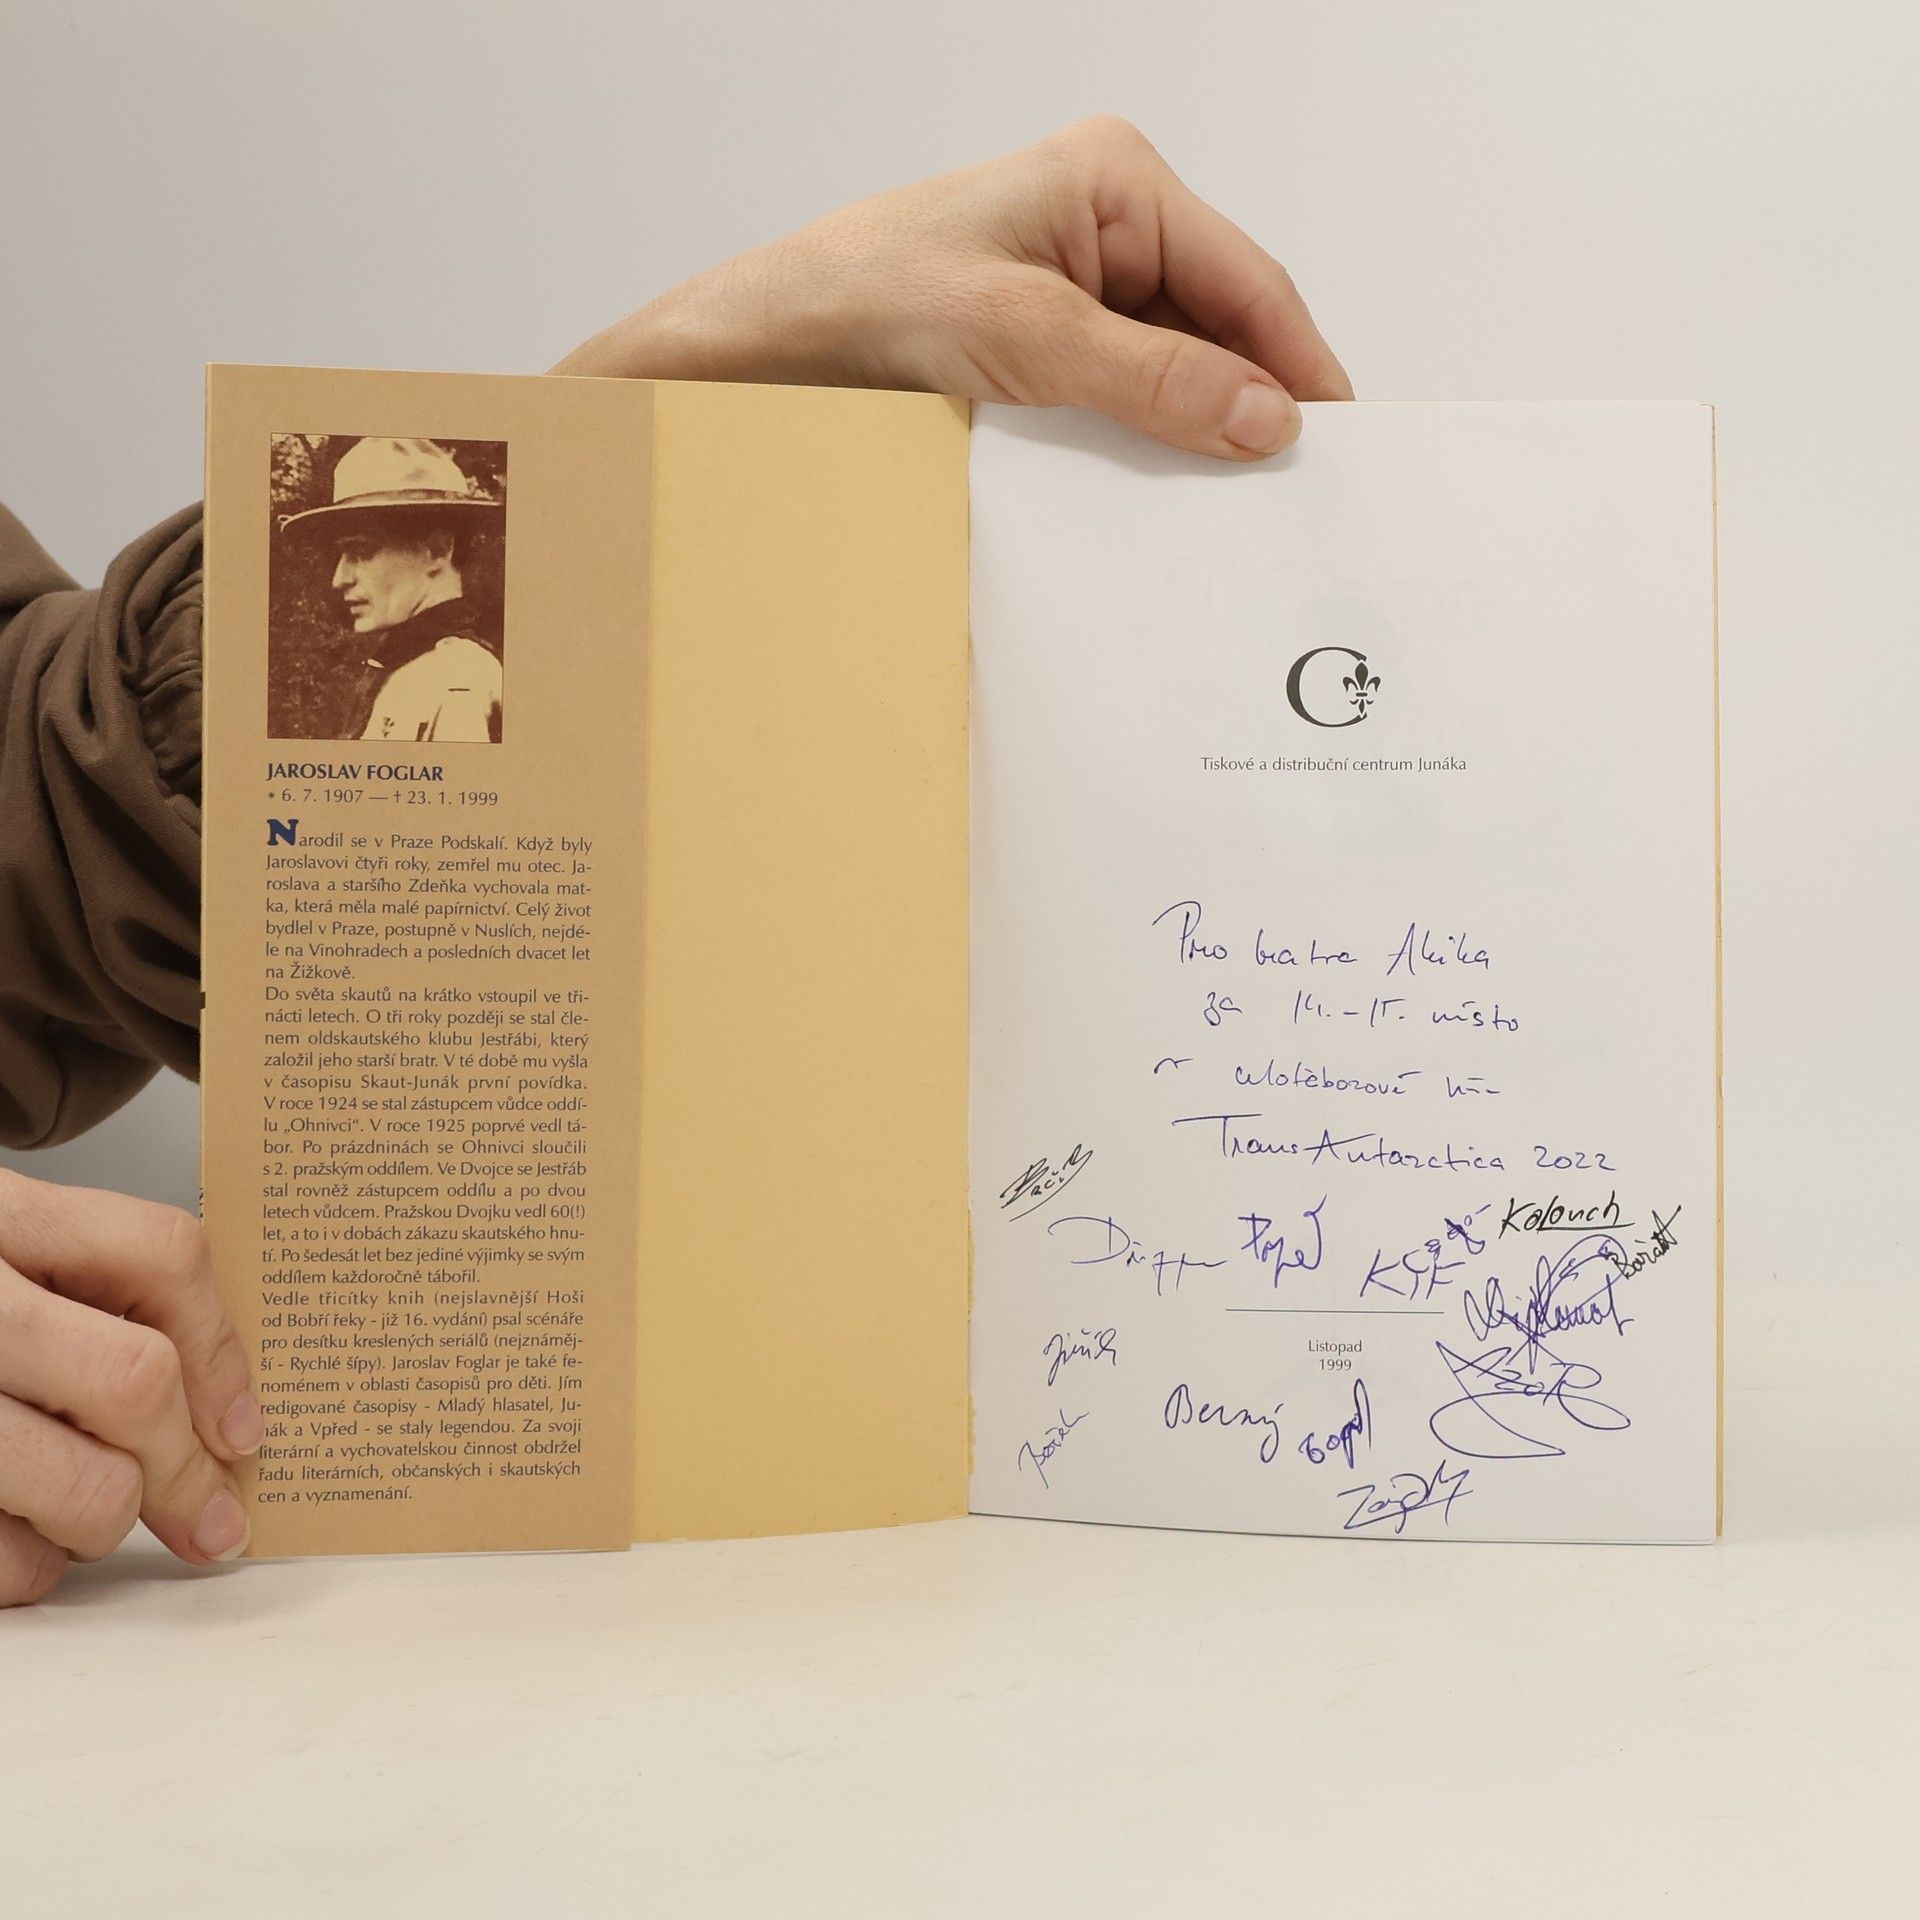 JAROSLAV FOGLAR
* 6. 7. 1907 — † 23. 1. 1999
Narodil se v Praze Podskalí. Když byly
Jaroslavovi čtyři roky, zemřel mu otec. Ja-
roslava a staršího Zdeňka vychovala mat-
ka, která měla malé papírnictví. Celý život
bydlel v Praze, postupně v Nuslích, nejdé-
le na Vinohradech a posledních dvacet let
na Žižkově.
Do světa skautů na krátko vstoupil ve tři-
nácti letech. O tři roky později se stal čle-
nem oldskautského klubu Jestřábi, který
založil jeho starší bratr. V té době mu vyšla
v časopisu Skaut-Junák první povídka.
V roce 1924 se stal zástupcem vůdce oddí-
lu „Ohnivci“. V roce 1925 poprvé vedl tá-
bor. Po prázdninách se Ohnivci sloučili
s 2. pražským oddílem. Ve Dvojce se Jestřáb
stal rovněž zástupcem oddílu a po dvou
letech vůdcem. Pražskou Dvojku vedl 60(!)
let, a to i v dobách zákazu skautského hnu-
tí. Po šedesát let bez jediné výjimky se svým
oddílem každoročně tábořil.
Vedle třicítky knih (nejslavnější Hoši
od Bobří řeky - již 16. vydání) psal scénáře
pro desítku kreslených seriálů (nejznáměj-
ší - Rychlé šípy). Jaroslav Foglar je také fe-
noménem v oblasti časopisů pro děti. Jím
redigované časopisy - Mladý hlasatel, Ju-
nák a Vpřed - se staly legendou. Za svoji
literární a vychovatelskou činnost obdržel
řadu literárních, občanských i skautských
cen a vyznamenání.
Tiskové a distribuční centrum Junáka
Pro bratra Akika
za 14.-15. místo
v celotáborové hře
TransAntarctica 2022
Kalouch
Listopad
1999
Jiřík
Berný
Bořek